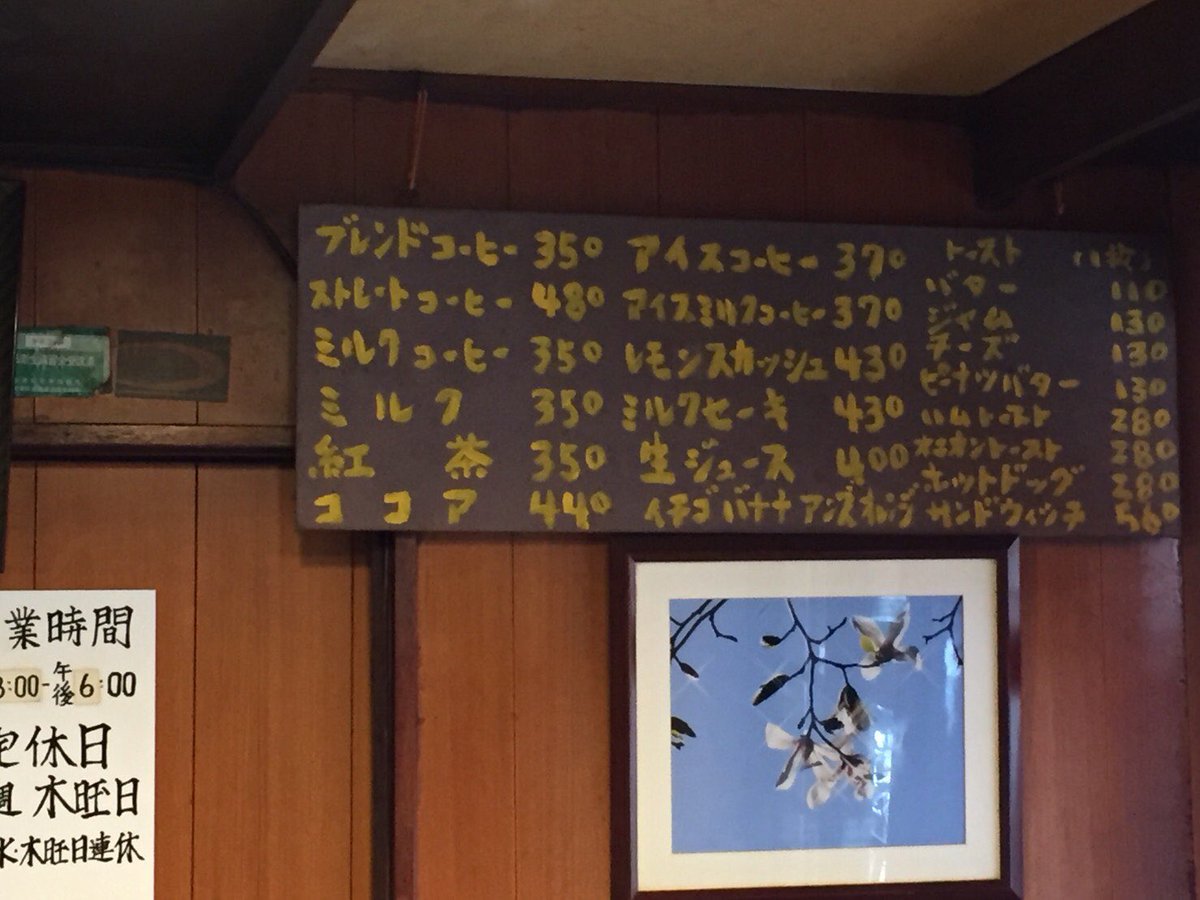 ブレンドコーヒー 350
ストレートコーヒー 480
ミルクコーヒー 350
ミルク 350
紅茶 350
ココア 440
アイスコーヒー 370
アイスミルクコーヒー 370
レモンスカッシュ 430
ミルクセーキ 430
生ジュース 400
イチゴ バナナ アンズ オレンジ
トースト (1枚)
バター 110
ジャム 130
チーズ 130
ピーナツバター 130
ハムトースト 280
オニオントースト 280
ホットドッグ 280
サンドウィッチ 560
業時間
:00-午後6:00
休日
週 木旺日
水・木旺日連休